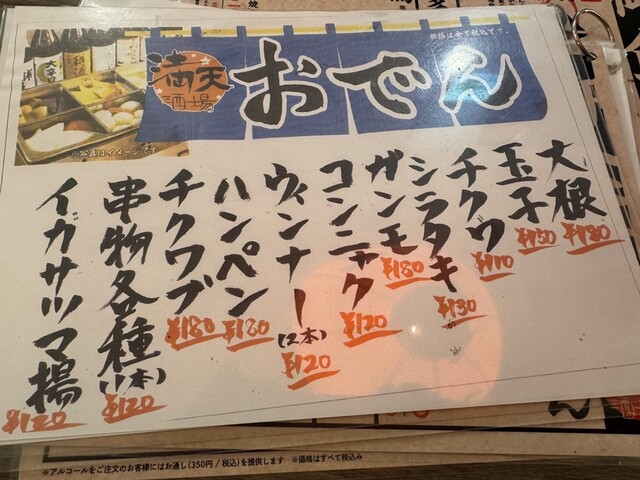 満天
酒場
おでん
価格は全て税込です。
大根
¥180
玉子
¥150
チクワ
¥110
シラタキ
¥130
ガンモ
¥180
コンニャク
¥120
ウィンナー(2本)
¥120
ハンペン
¥180
チクワブ
¥180
串物各種(1本)
¥120
イガサツマ揚
¥120
※写真はイメージです
※アルコールをご注文のお客様にはお通し(350円 / 税込)を提供します ※価格はすべて税込み